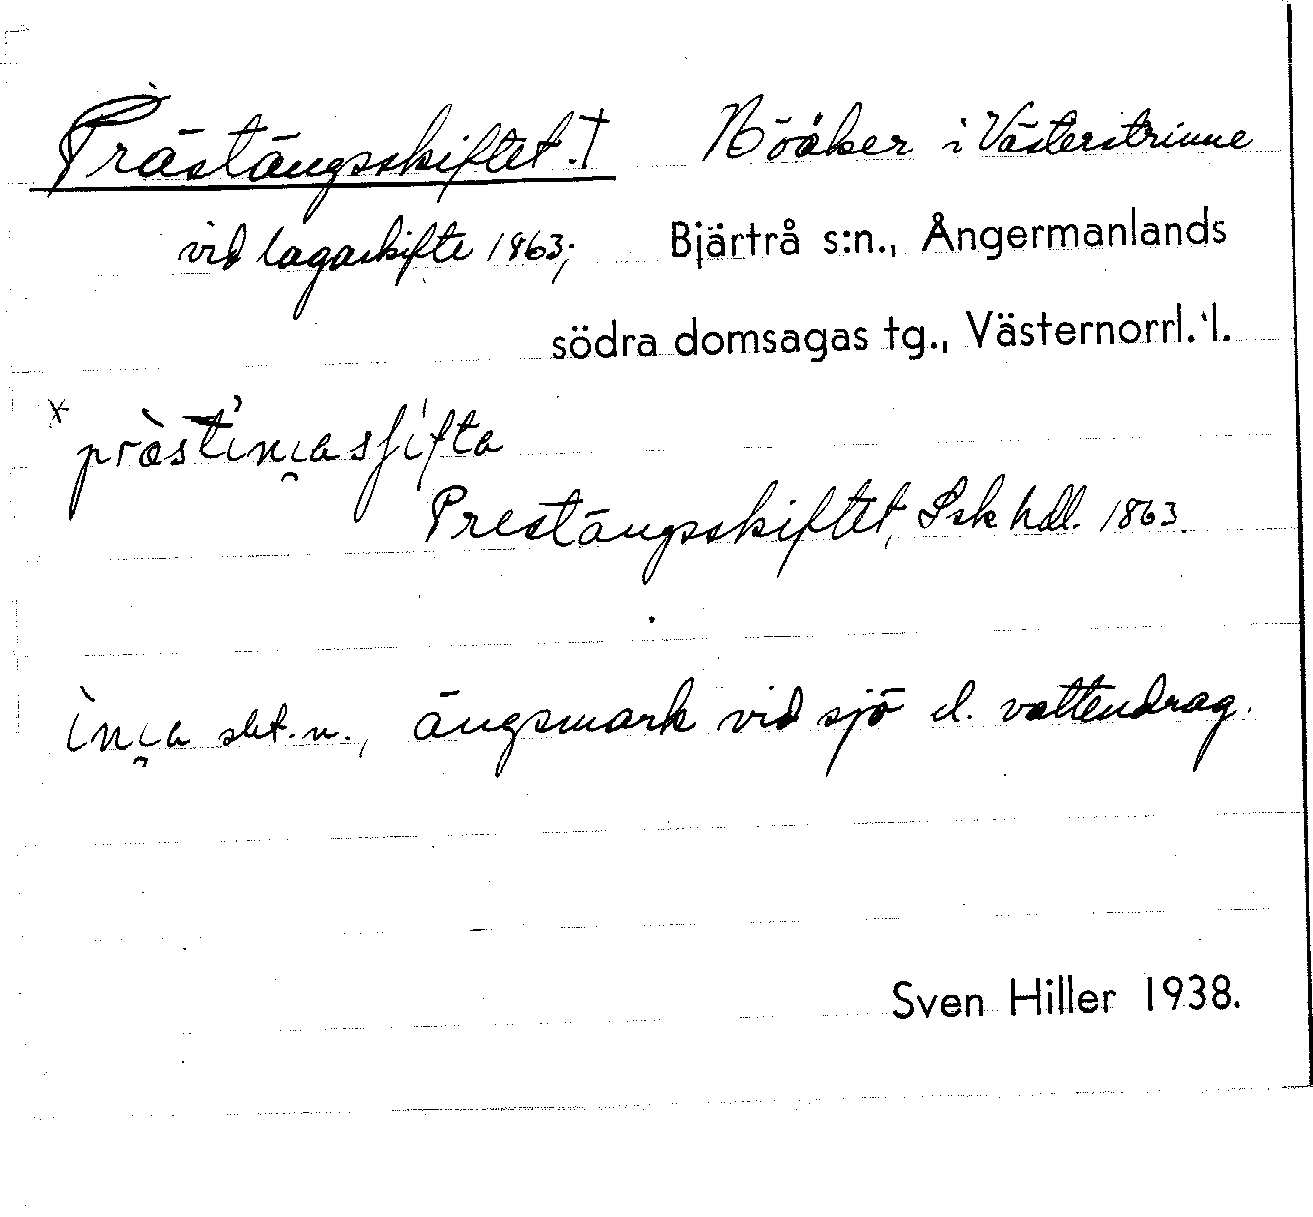 Prästängsskiftet. † Höåker i Västerstrinne
vid lagaskifte 1863; Bjärtrå s:n., Ångermanlands
södra domsagas tg., Västernorrl. l.
Prestängsskiftet, Lsk hdl. 1863.
sbt. n., ängsmark vid sjö el. vattendrag.
Sven Hiller 1938.